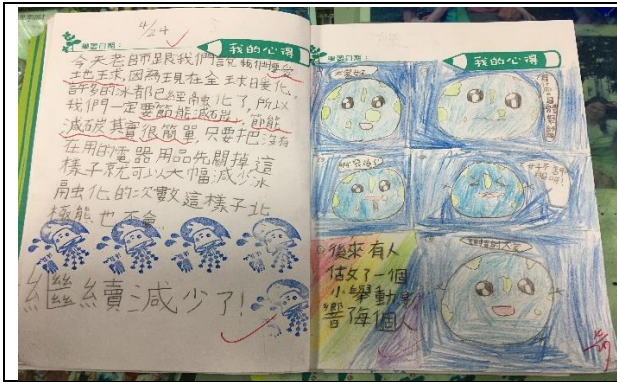 4/24
學習日期：
我的心得
今天老師跟我們說我們要愛
地球，因為現在全球暖化，
許多的冰都已經融化了，所以
我們一定要節能減碳，節能
減碳其實很簡單，只要把沒有
在用的電器用品先關掉這
樣子就可以大幅減少冰
融化的次數這樣子北
極熊也不會
繼續減少了！
學習日期：
我的心得
後來有人
做了一個
小舉動影
響每個人